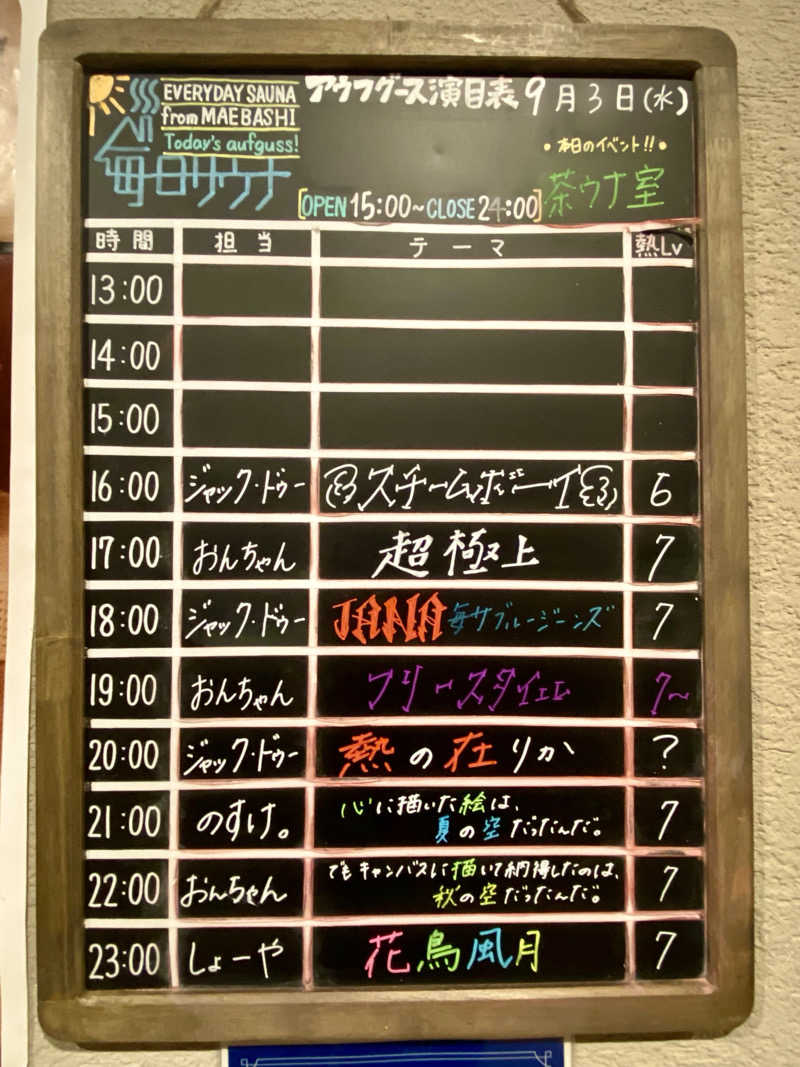 EVERYDAY SAUNA
from MAEBASHI
Today's aufguss!
毎日サウナ
アウフグース演目表 9月3日(水)
•本日のイベント!!•
[OPEN 15:00~CLOSE 24:00]
茶ウナ室
時間 担当 テーマ 熱Lv
13:00
14:00
15:00
16:00 ジャック・ドゥー スチームボーイ 6
17:00 おんちゃん 超極上 7
18:00 ジャック・ドゥー JANA 毎サブルージーンズ 7
19:00 おんちゃん フリースタイル 7~
20:00 ジャック・ドゥー 熱の在りか ?
21:00 のすけ。 心に描いた絵は、
夏の空だったんだ。 7
22:00 おんちゃん でもキャンバスに描いて納得したのは、
秋の空だったんだ。 7
23:00 しょーや 花鳥風月 7